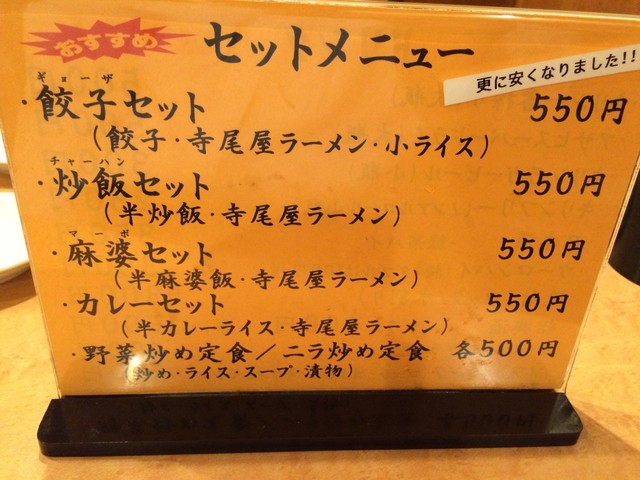 おすすめ
セットメニュー
更に安くなりました!!
ギョーザ
・餃子セット 550円
(餃子・寺尾屋ラーメン・小ライス)
チャーハン
・炒飯セット 550円
(半炒飯・寺尾屋ラーメン)
マーボ
・麻婆セット 550円
(半麻婆飯・寺尾屋ラーメン)
・カレーセット 550円
(半カレーライス・寺尾屋ラーメン)
・野菜炒め定食/ニラ炒め定食 各500円
(炒め・ライス・スープ・漬物)